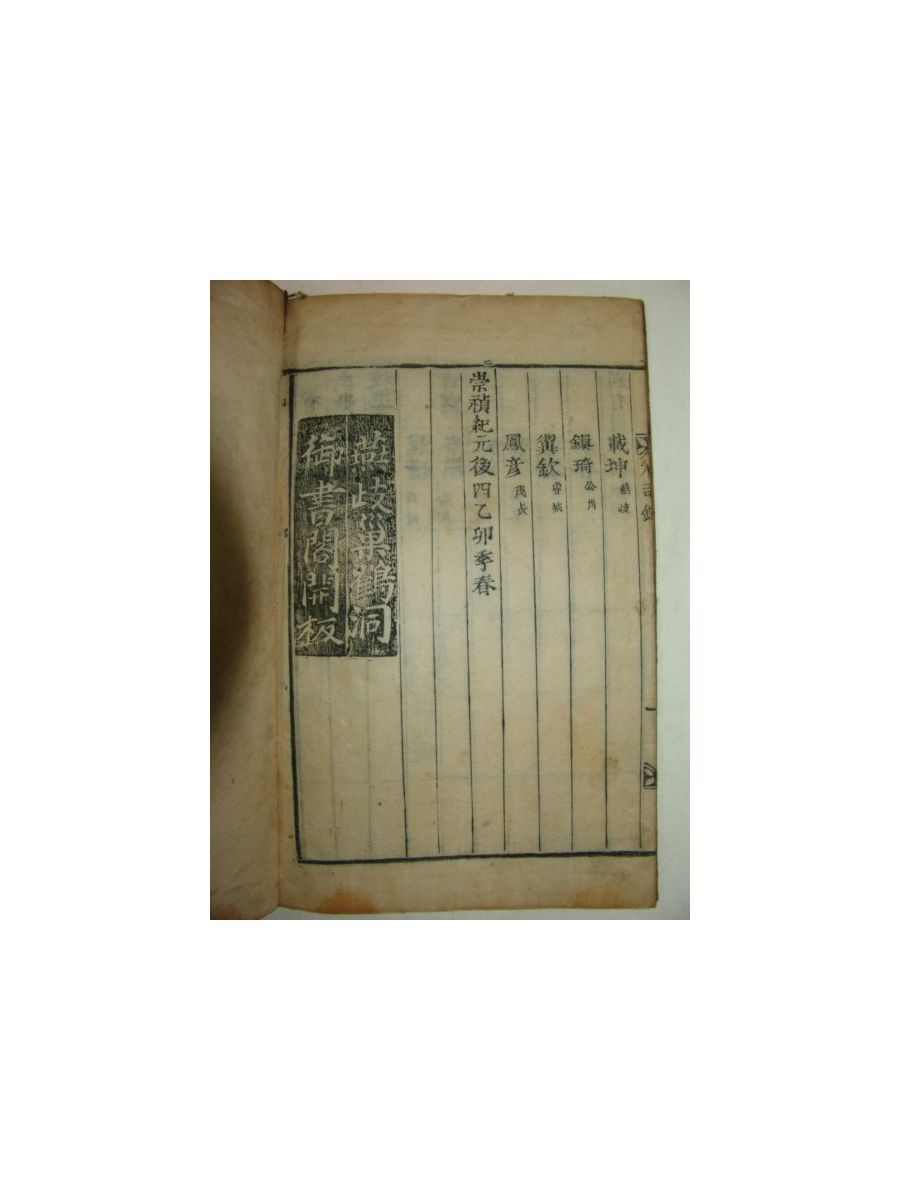 載坤 燕岐
鎭琦 公州
翼欽 曽城
鳳彦 茂長
崇禎紀元後四乙卯季春
燕歧巢鶴洞
御書閣開板